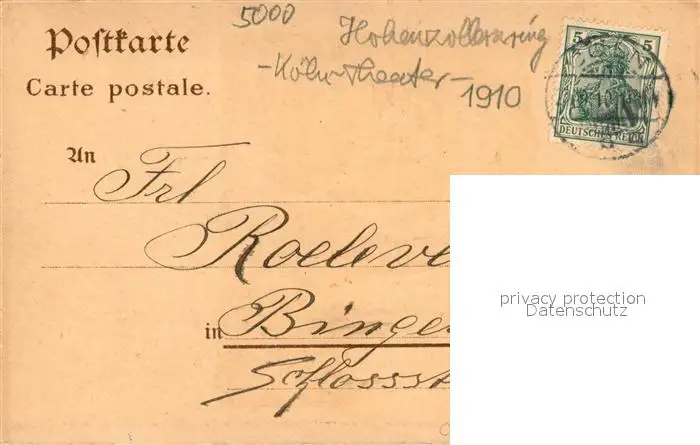 5000
Hohenzollernring
-Köln-Theater-
1910
Postkarte
Carte postale.
5 5
DEUTSCHES REICH
An
Frl
Roeleve
in Binge
Schlossst
privacy protection
Datenschutz